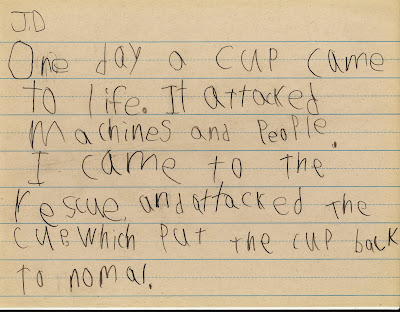 J.D
One day a cup came
to life. It attacked
machines and people.
I came to the
rescue and attacked the
cub which put the cup back
to nomal.